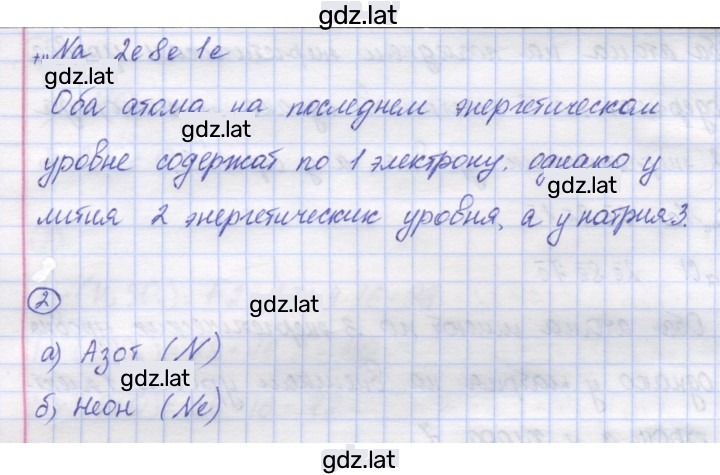 gdz.lat
₊₁₁Na 2е8е1е
gdz.lat
Оба атома на последнем энергетическом
gdz.lat
уровне содержат по 1 электрону, однако у
gdz.lat
лития 2 энергетических уровня, а у натрия 3.
2
gdz.lat
а) Азот (N)
gdz.lat
б) Неон (Ne)
gdz.lat